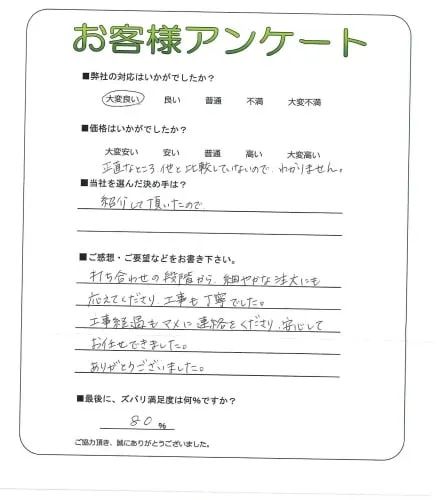 お客様アンケート
■弊社の対応はいかがでしたか?
大変良い 良い 普通 不満 大変不満
■価格はいかがでしたか?
大変安い 安い 普通 高い 大変高い
正直なところ他と比較していないので、わかりません。
■当社を選んだ決め手は?
紹介して頂いたので
■ご感想・ご要望などをお書き下さい。
打ち合わせの段階から、細やかな注文にも
応えてくださり、工事も丁寧でした。
工事経過もマメに連絡をくださり、安心して
お任せできました。
ありがとうございました。
■最後に、ズバリ満足度は何%ですか?
80 %
ご協力頂き、誠にありがとうございました。